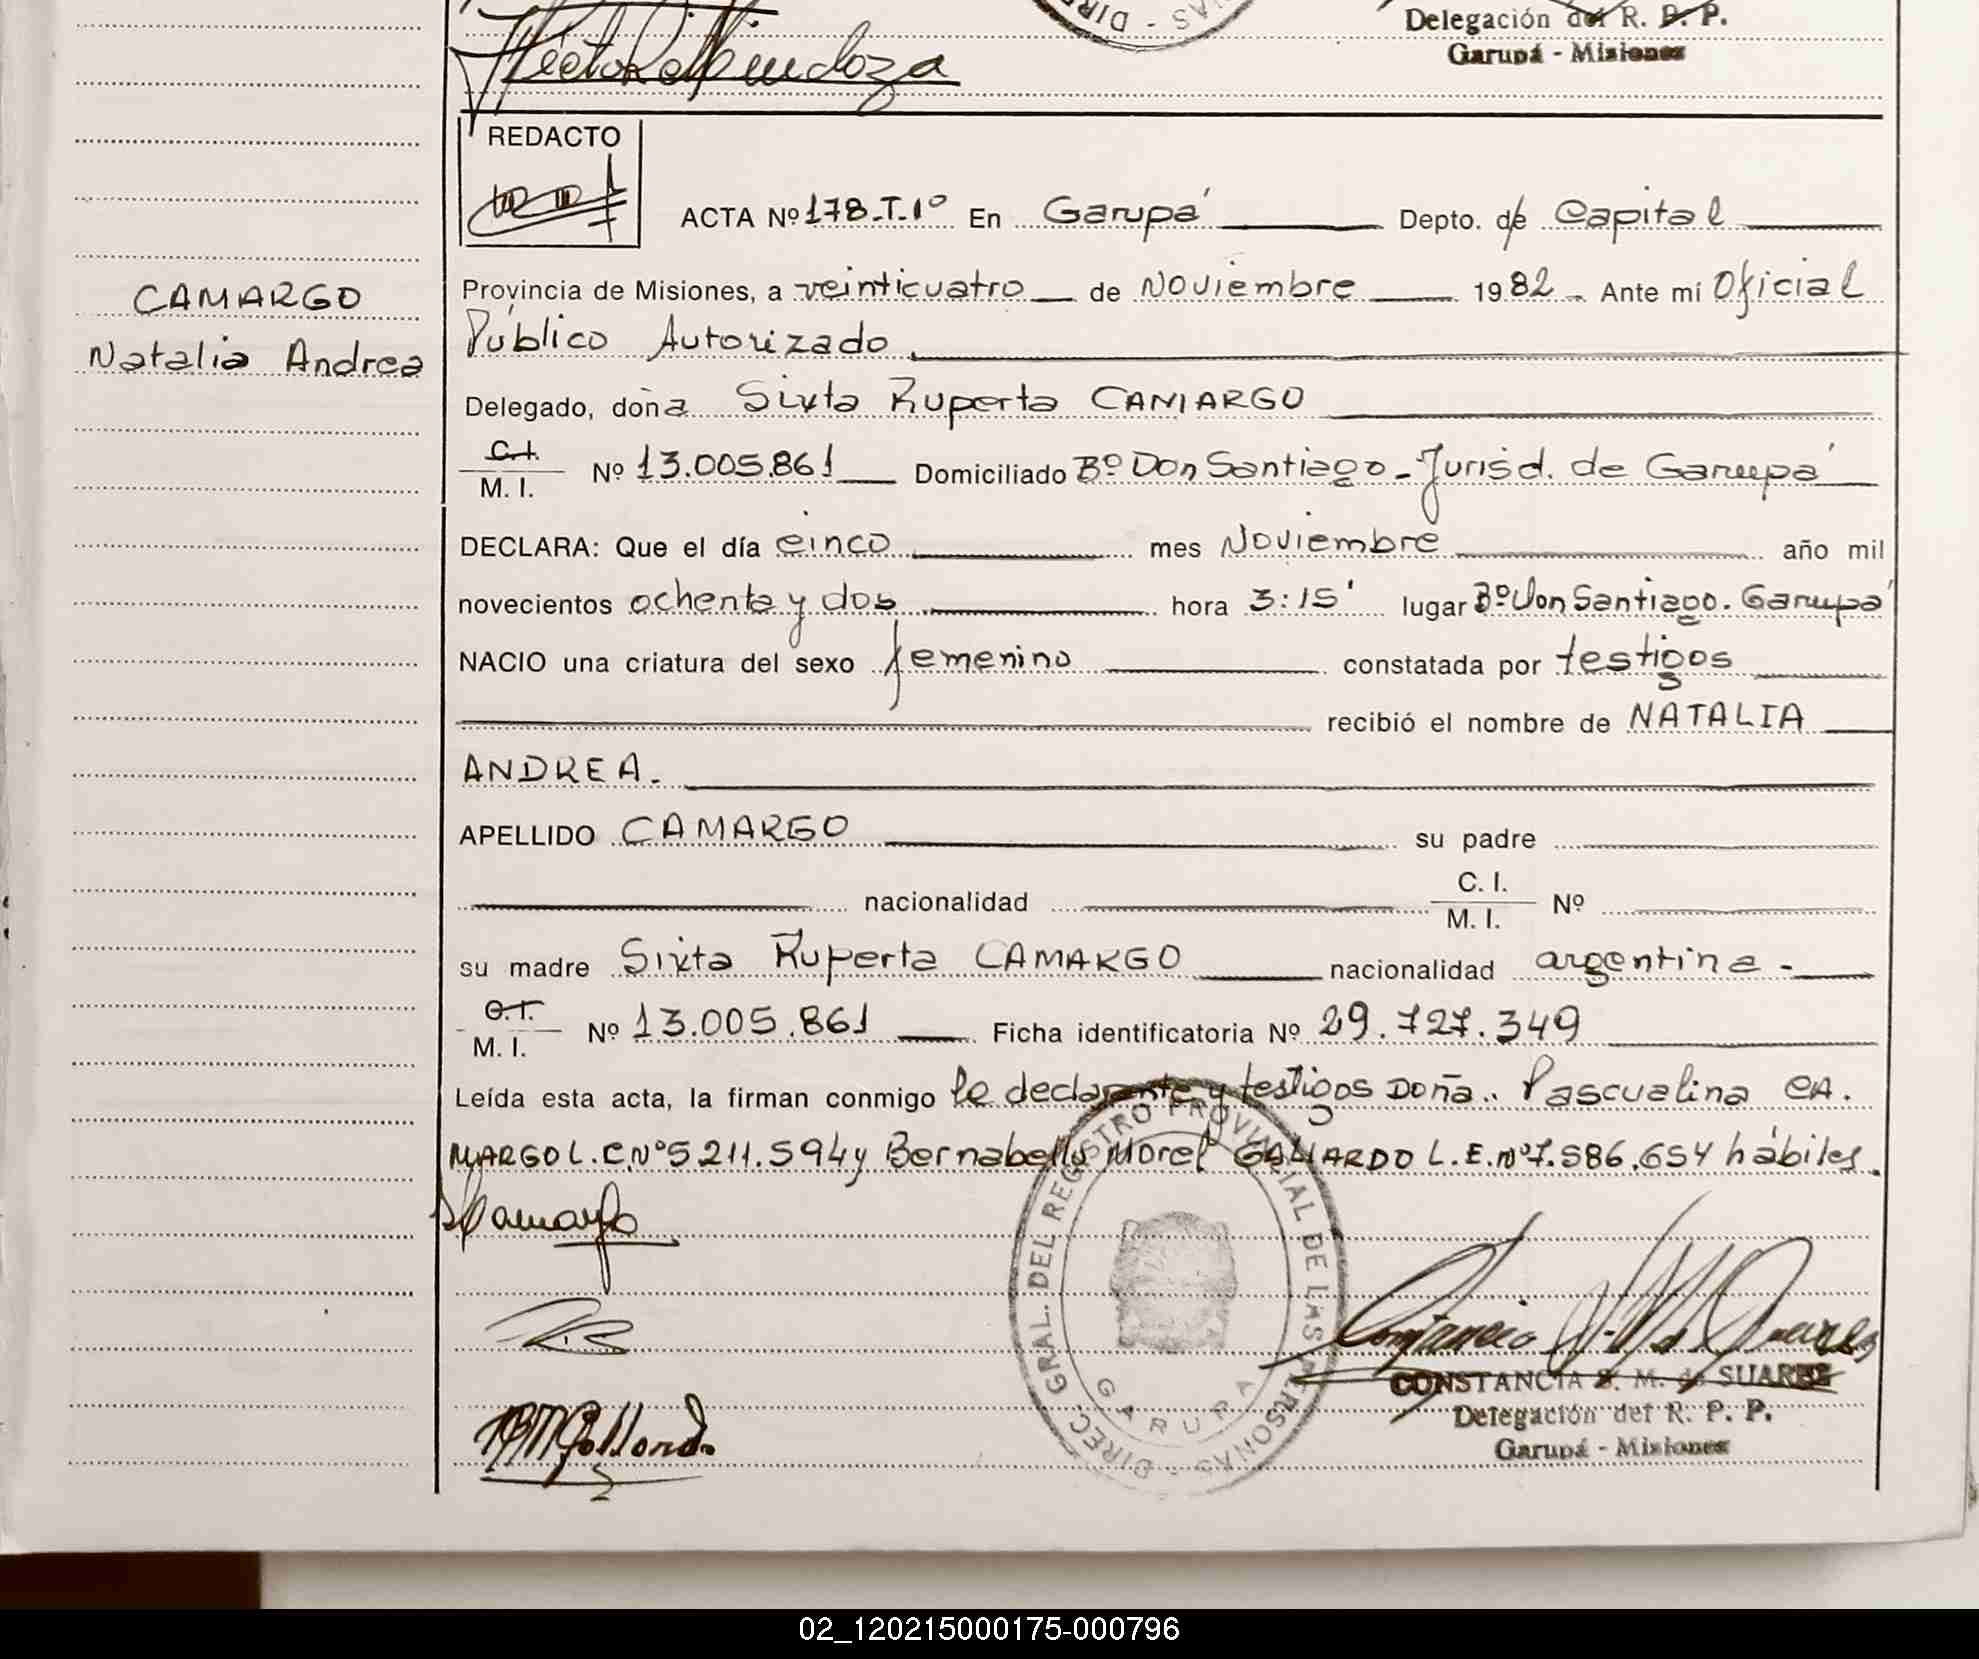 Héctor R. Mendoza
Delegación del R. P. P.
Garupá - Misiones
REDACTO
ACTA Nº 178-T-1º En Garupá Depto. de Capital
CAMARGO
Natalia Andrea
Provincia de Misiones, a veinticuatro de Noviembre 1982 Ante mí Oficial
Público Autorizado
Delegado, doña Sixta Ruperta CAMARGO
C.I.
M. I. Nº 13.005.861 Domiciliado Bº Don Santiago - Jurisd. de Garupá
DECLARA: Que el día cinco mes Noviembre año mil
novecientos ochenta y dos hora 3:15' lugar Bº Don Santiago. Garupá
NACIO una criatura del sexo femenino constatada por testigos
recibió el nombre de NATALIA
ANDREA.
APELLIDO CAMARGO su padre
nacionalidad C. I.
M. I. Nº
su madre Sixta Ruperta CAMARGO nacionalidad argentina -
C.I.
M. I. Nº 13.005.861 Ficha identificatoria Nº 29.727.349
Leída esta acta, la firman conmigo la declarante y testigos Doña.. Pascualina CA.
MARGO L.C.Nº5211.594 y Bernabella Morel GALLARDO L.E.Nº7.586.654 hábiles.
SCamargo
DIREC. GRAL. DEL REGISTRO PROVINCIAL DE LAS PERSONAS -
GARUPA
Constancia S. M. de Suarez
CONSTANCIA S. M. de SUAREZ
Delegación del R. P. P.
Garupá - Misiones
BMGallardo
02_120215000175-000796